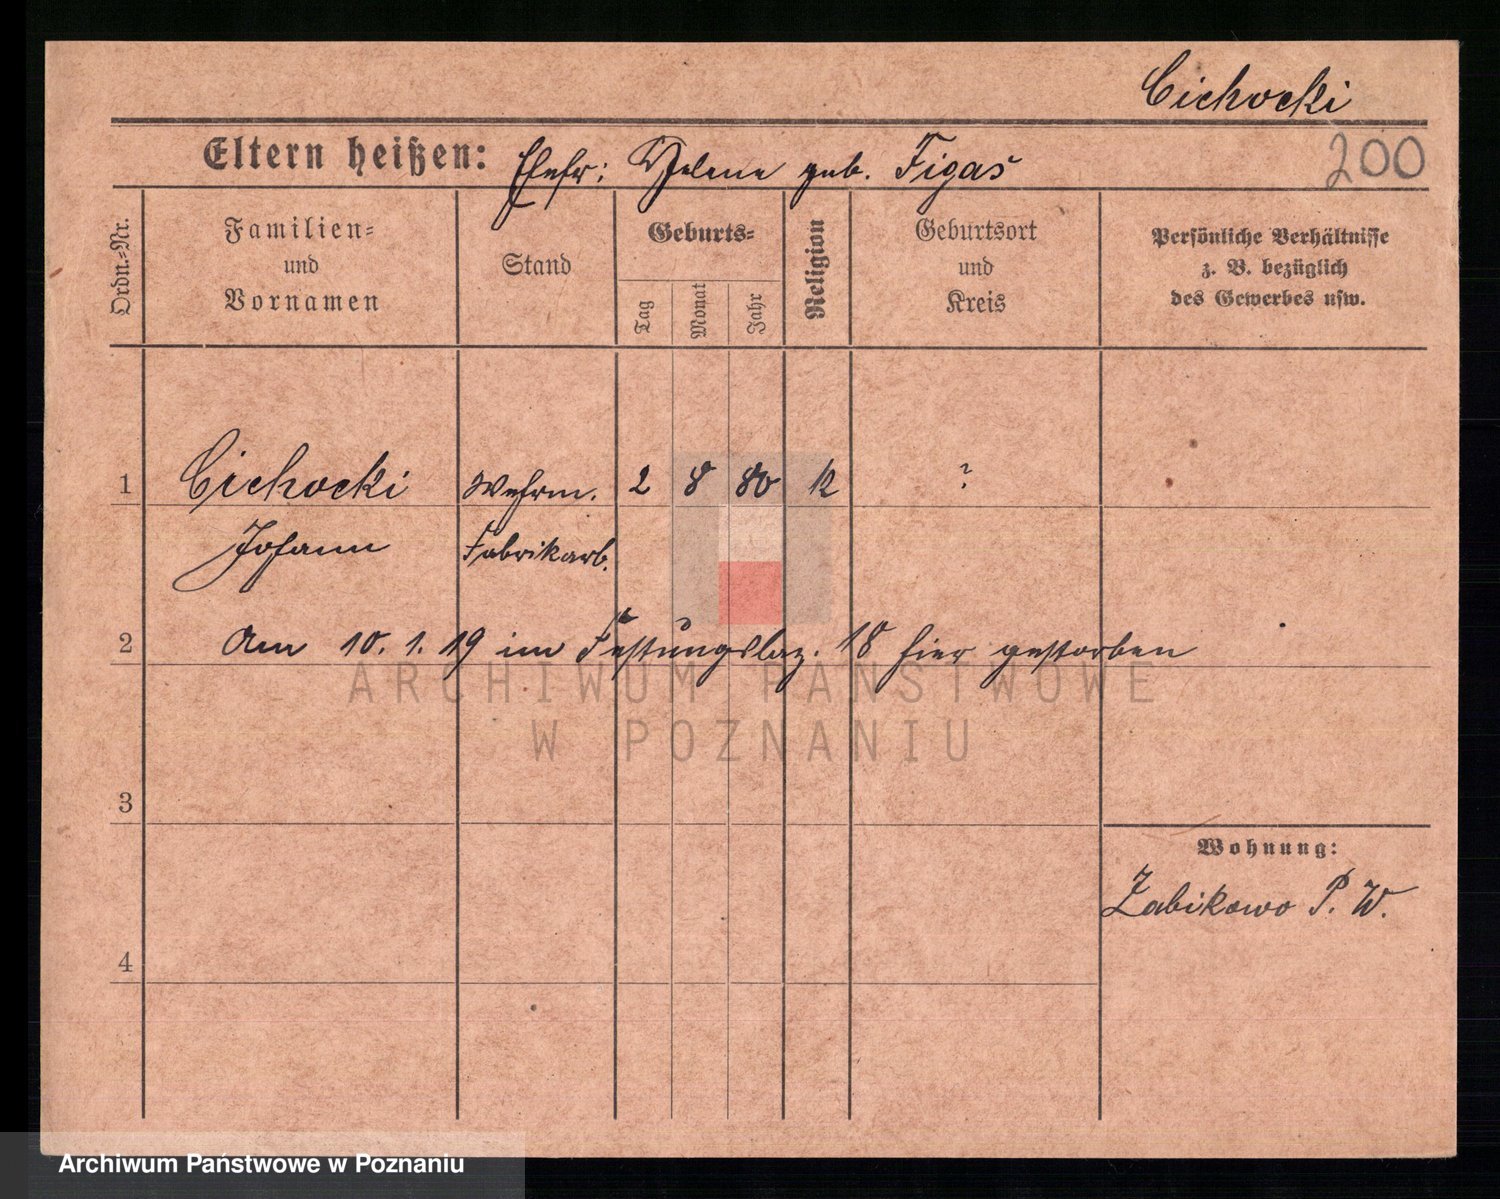 Cichocki
200
Eltern heißen: Ehefr: Helene geb. Figas
Ordn.-Nr.
Familien-
und
Vornamen
Stand
Geburts-
Tag
Monat
Jahr
Religion
Geburtsort
und
Kreis
Persönliche Verhältnisse
z. B. bezüglich
des Gewerbes usw.
1 Cichocki Wehrm. 2 8 80 K ?
Johann Fabrikarb.
2 Am 10. 1. 19 im Festungslaz. 18 hier gestorben
ARCHIWUM PAŃSTWOWE
W POZNANIU
3
Wohnung:
Zabikowo P. W.
4
Archiwum Państwowe w Poznaniu